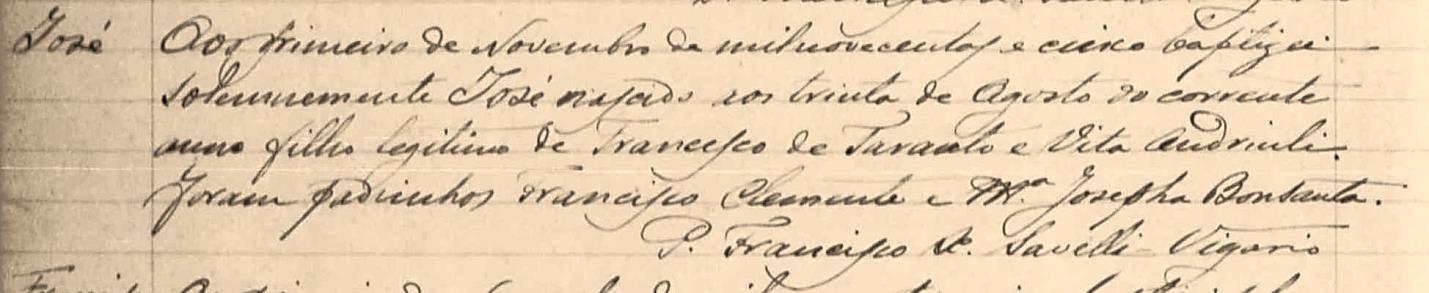 José Aos primeiro de Novembro de mil novecentos e cinco baptizei
solemnemente José nascido aos trinta de Agosto do corrente
anno filho legitimo de Francisco de Taranto e Vita Andriuli.
Foram padrinhos Francisco Clemente e Mª. Josepha Bonsanta.
P. Francisco Savelli Vigario